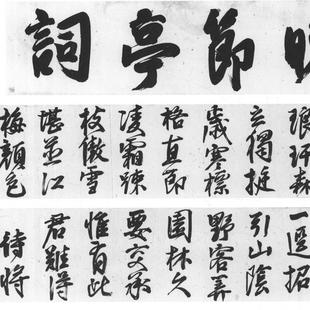 節亭詞
琅玕森
立獨挺
歲寒標
格直節
凌霜踈
枝傲雪
堪並江
梅顏色
一逕招
引山陰
野客算
園林久
要交承
惟有此
君難得
待將